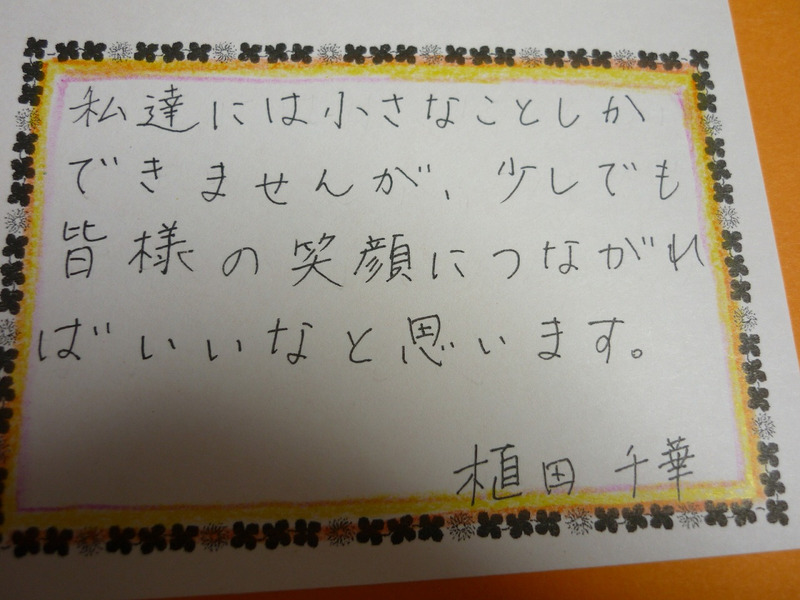 私達には小さなことしか
できませんが、少しでも
皆様の笑顔につながれ
ばいいなと思います。
植田 千華